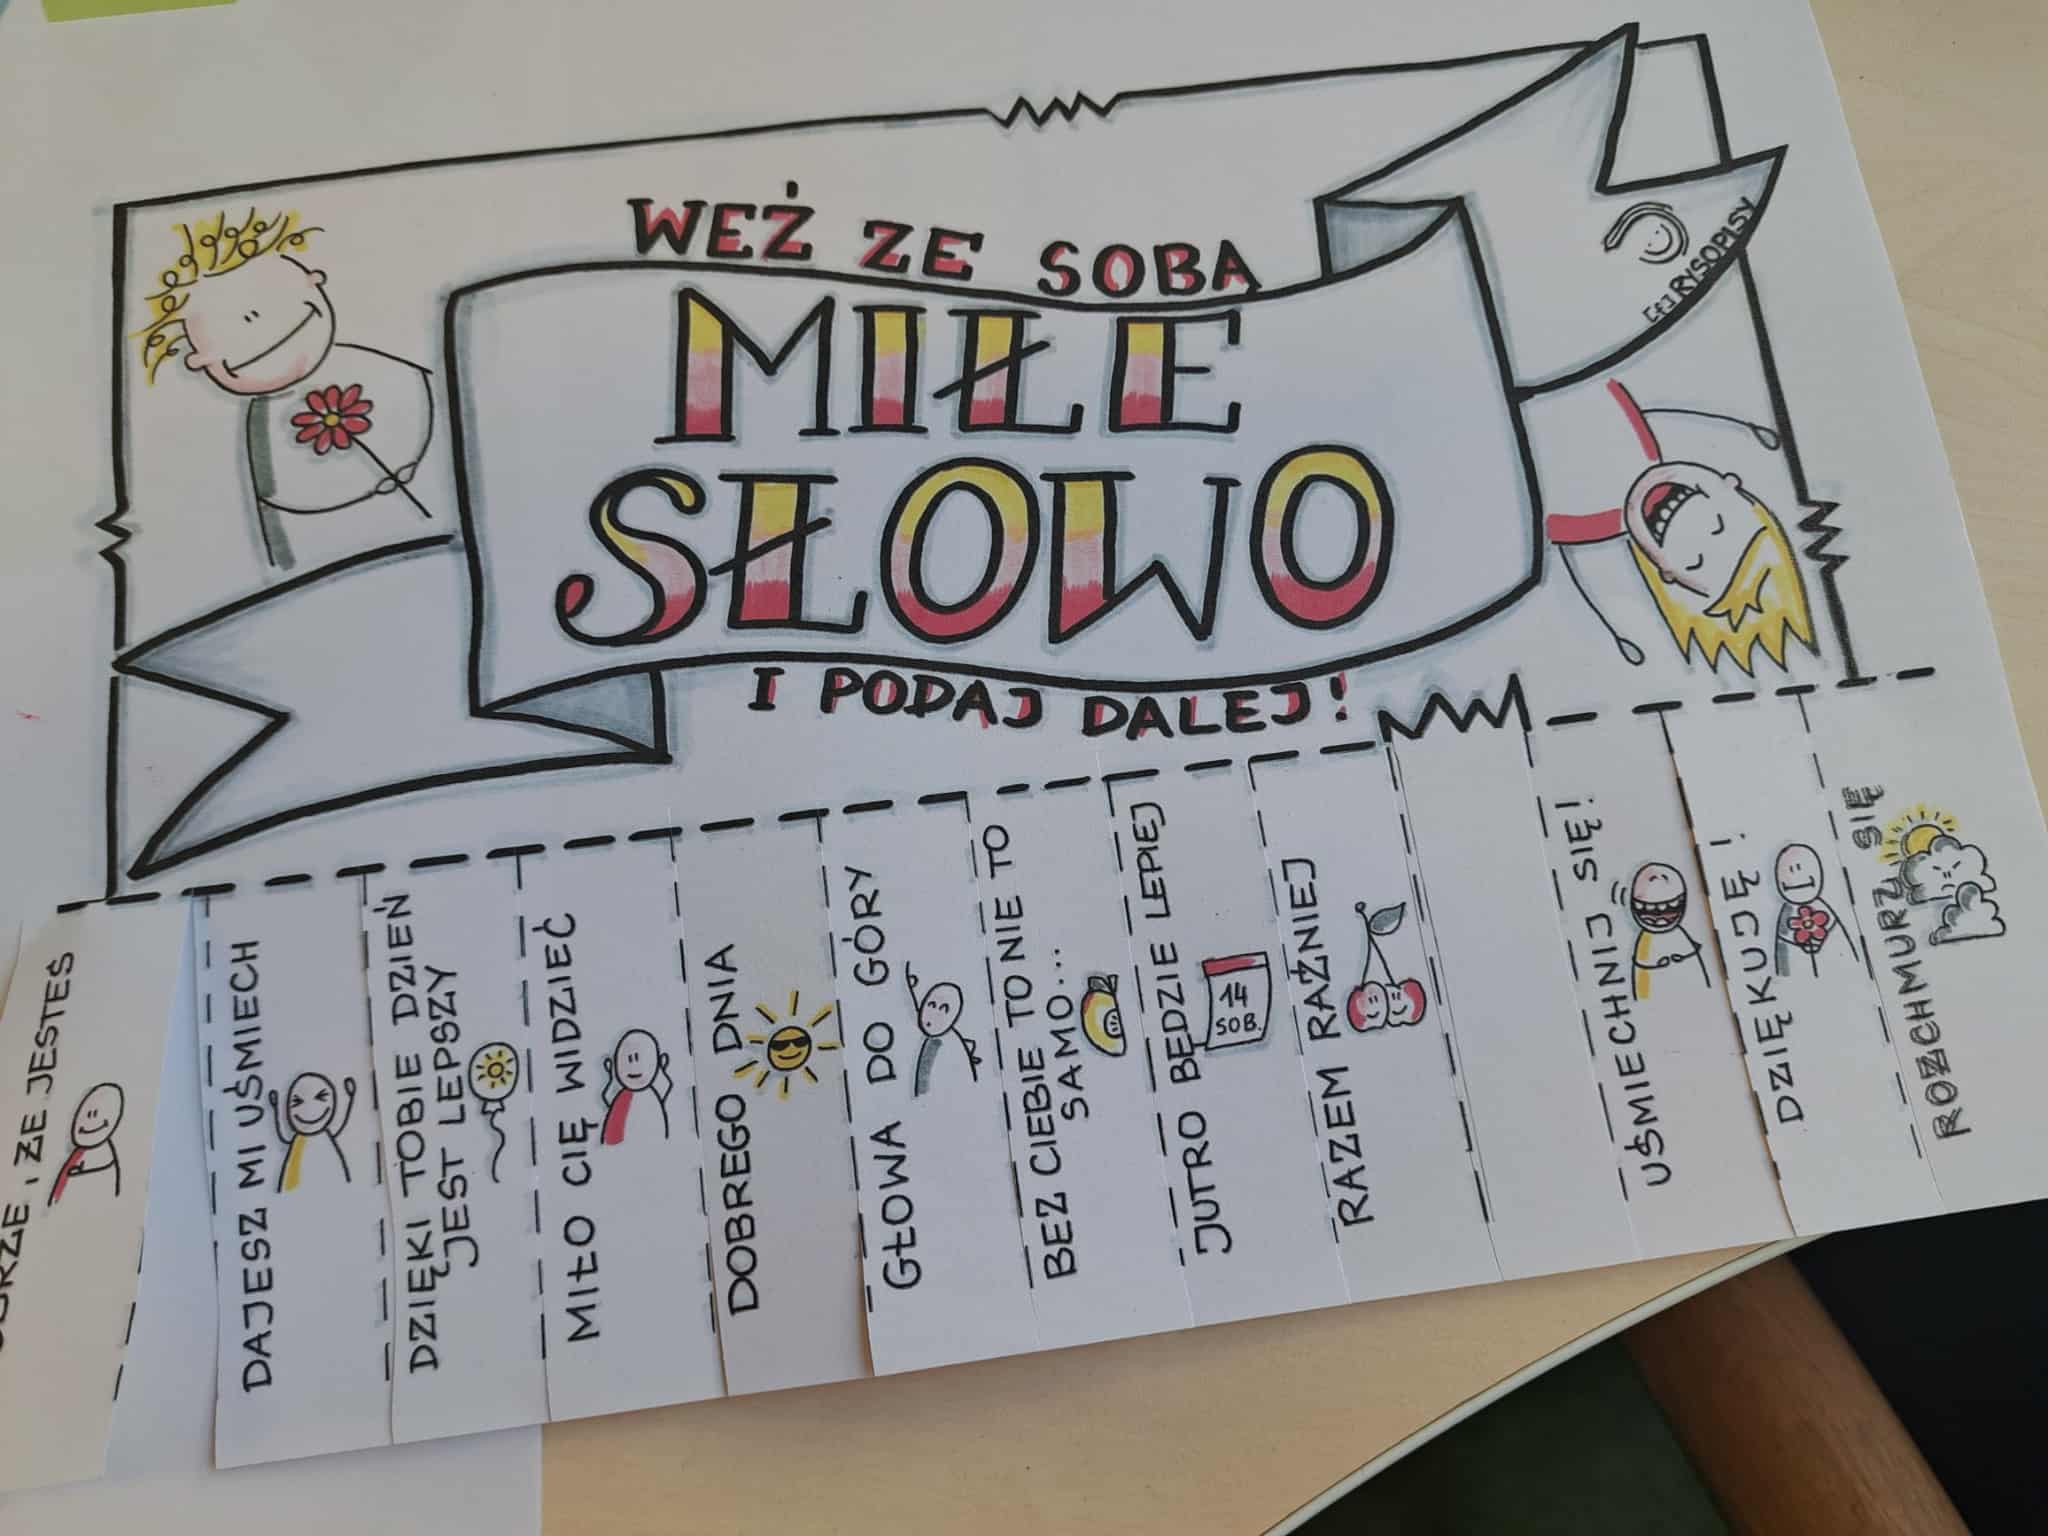 WEŻ ZE SOBĄ
MIŁE
SŁOWO
I PODAJ DALEJ!
[f] RYSOPISY
ŻE JESTEŚ
DAJESZ MI UŚMIECH
DZIĘKI TOBIE DZIEŃ
JEST LEPSZY
MIŁO CIĘ WIDZIEĆ
DOBREGO DNIA
GŁOWA DO GÓRY
BEZ CIEBIE TO NIE TO
SAMO...
JUTRO BĘDZIE LEPIEJ
14
SOB.
RAZEM RAŹNIEJ
UŚMIECHNIJ SIĘ!
DZIĘKUJĘ!
ROZCHMURZ SIĘ